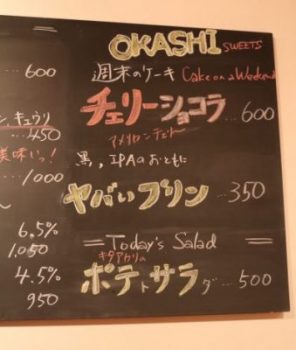 OKASHI SWEETS
週末のケーキ Cake on a Weekend
チェリーショコラ … 600
アメリカンチェリー
黒, IPAのおともに
ヤバいプリン … 350
= Today's Salad =
キタアカリの
ポテトサラダ … 500
… 600
キュウリ
… 450
美味いっ!
… 1000
6.5%
1,050
4.5%
950